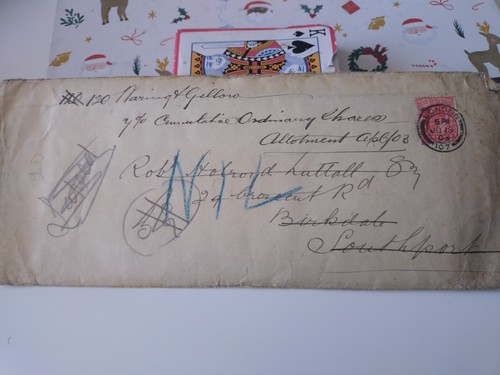 K
120 Waring & Gillow
Cumulative Ordinary Shares
Allotment
Robt Holroyd Nuttall Esq
24 Crescent Rd
Birkdale
Southport
NIL
LONDON
5 PM
03
107